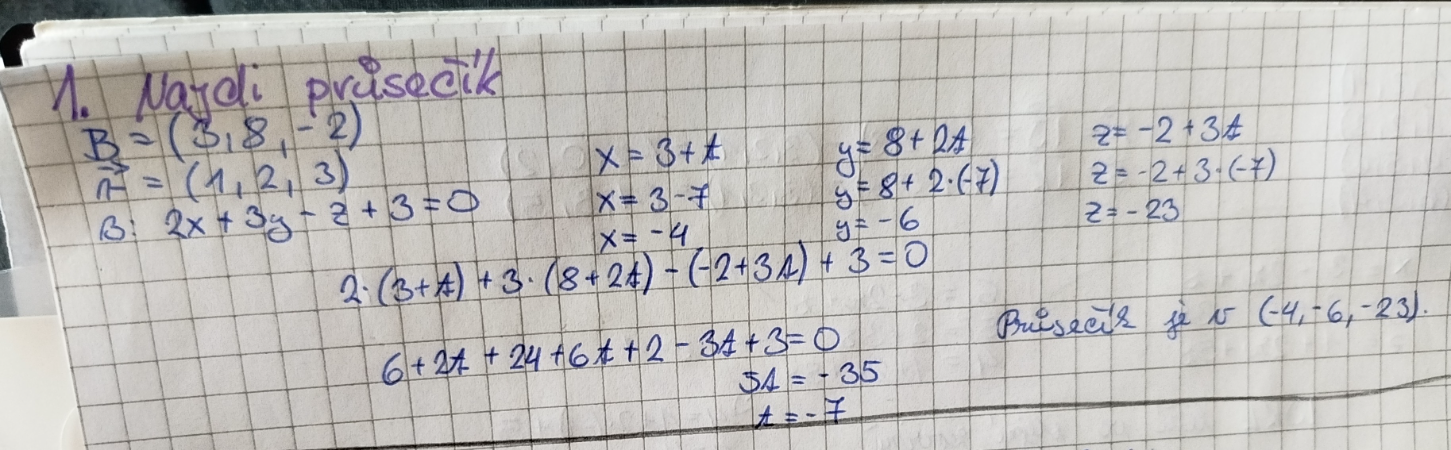 1. Najdi průsečík
B = (3, 8, -2)
n⃗ = (1, 2, 3)
β: 2x + 3y - z + 3 = 0
x = 3 + t
x = 3 - 7
x = -4
y = 8 + 2t
y = 8 + 2·(-7)
y = -6
z = -2 + 3t
z = -2 + 3·(-7)
z = -23
2·(3+t) + 3·(8+2t) - (-2+3t) + 3 = 0
6 + 2t + 24 + 6t + 2 - 3t + 3 = 0
5t = -35
t = -7
Průsečík je v (-4, -6, -23).